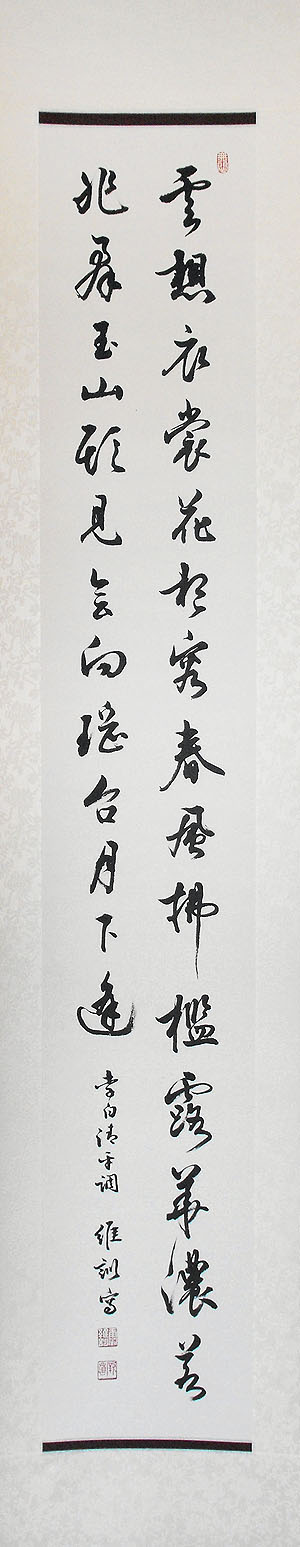 雲想衣裳花想容春風拂檻露華濃若
非群玉山頭見會向瑤台月下逢
李白清平調 維訓寫